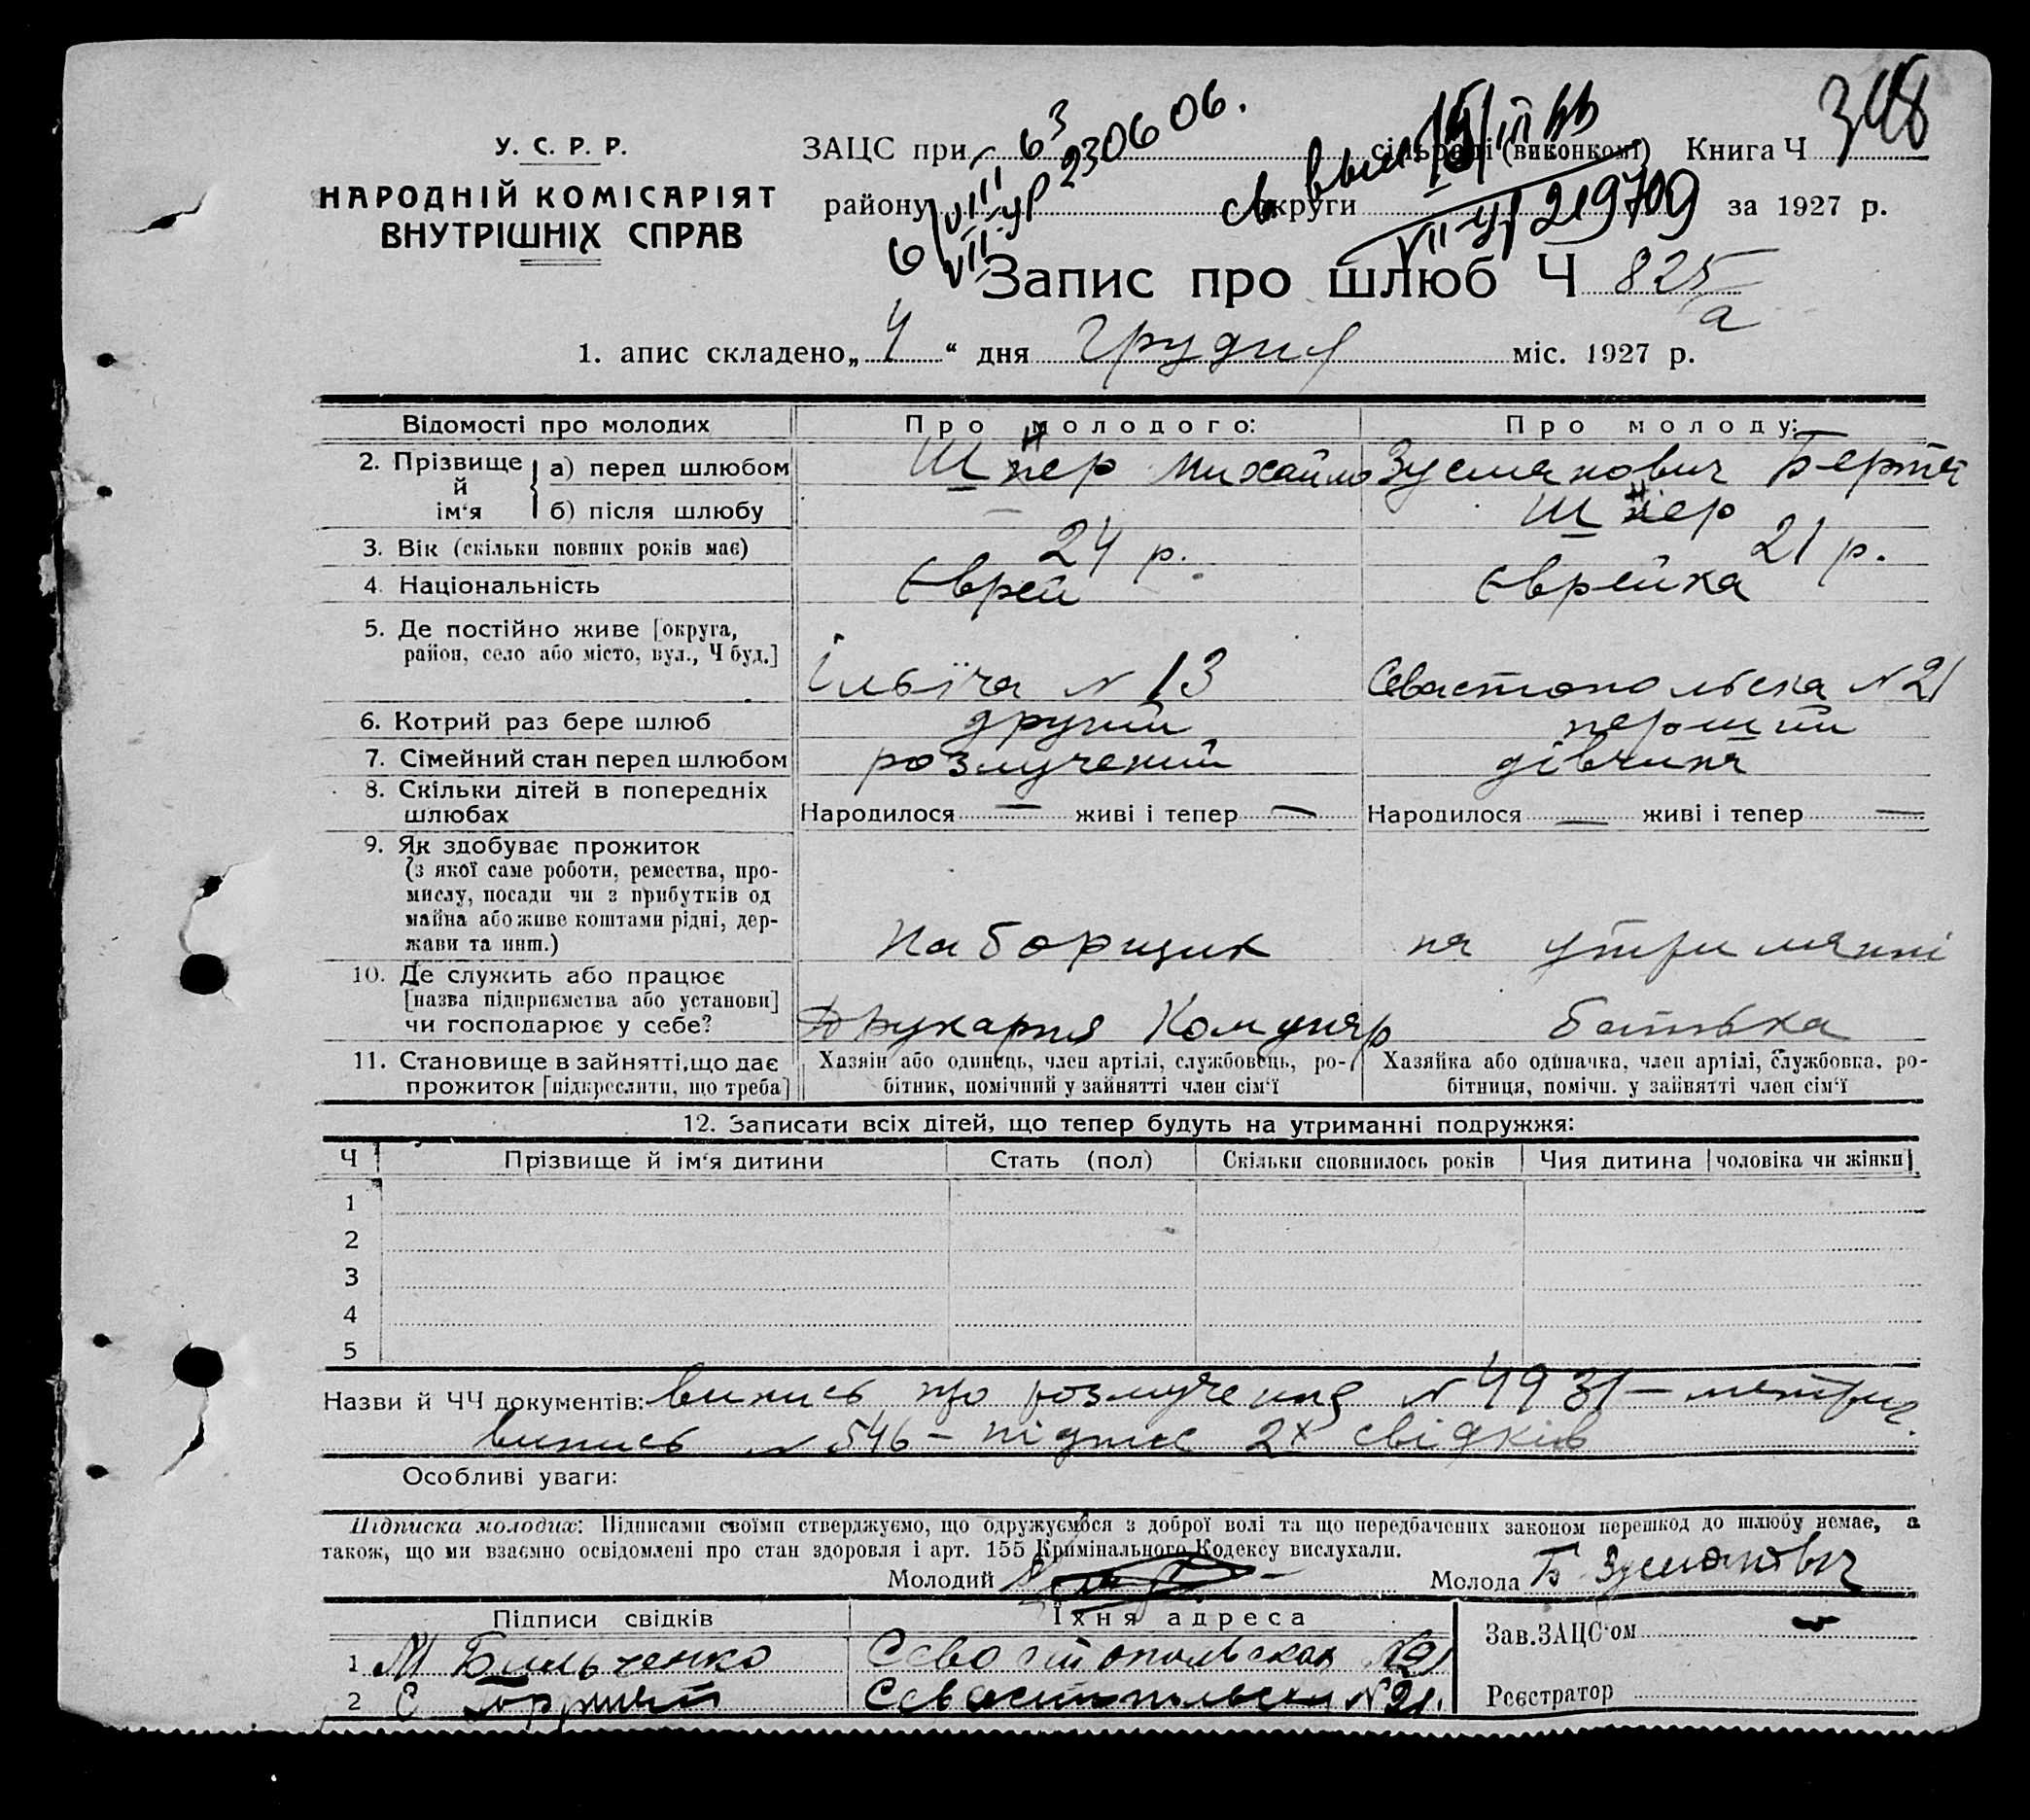 348
У. С. Р. Р.
НАРОДНІЙ КОМІСАРІЯТ
ВНУТРІШНІХ СПРАВ
ЗАЦС при 230606. сільраді (виконкомі) Книга Ч
району округи 219709 за 1927 р.
Запис про шлюб Ч 825/а
1. апис складено „4“ дня Грудня міс. 1927 р.
Відомості про молодих Про молодого: Про молоду:
2. Прізвище й ім‘я а) перед шлюбом Михайло Зусманович Берта
б) після шлюбу
3. Вік (скільки повних років має) 24 р. 21 р.
4. Національність Єврей Єврейка
5. Де постійно живе [округа,
район, село або місто, вул., Ч буд.] Ільїча № 13 Севастопольска № 21
6. Котрий раз бере шлюб другий перший
7. Сімейний стан перед шлюбом розлучений дівчина
8. Скільки дітей в попередніх
шлюбах Народилося — живі і тепер — Народилося — живі і тепер —
9. Як здобуває прожиток
(з якої саме роботи, ремества, про-
мислу, посади чи з прибутків од
майна або живе коштами рідні, дер-
жави та инш.) Наборщик на утриманні
10. Де служить або працює
[назва підприємства або установи]
чи господарює у себе? Друкарня Комунар батька
11. Становище в зайнятті, що дає
прожиток [підкреслити, що треба]
Хазяін або одинець, член артілі, службовець, ро-
бітник, помічний у зайнятті член сім‘ї
Хазяйка або одиначка, член артілі, службовка, ро-
бітниця, помічн. у зайнятті член сім‘ї
12. Записати всіх дітей, що тепер будуть на утриманні подружжя:
Ч Прізвище й ім‘я дитини Стать (пол) Скільки сповнилось років Чия дитина [чоловіка чи жінки]
1
2
3
4
5
Назви й ЧЧ документів: випись про розлучення № 4931 – метрич.
випись № 546 – підпис 2х свідків
Особливі уваги:
Підписка молодих: Підписами своїми стверджуємо, що одружуємося з доброї волі та що передбачених законом перешкод до шлюбу немає, а
також, що ми взаємно освідомлені про стан здоровля і арт. 155 Кримінального Кодексу вислухали.
Молодий Молода Б Зусманович
Підписи свідків Їхня адреса
Зав. ЗАЦС‘ом
1 М Бильченко Севостопольская №21
2 С Севастопольская №21.
Реєстратор